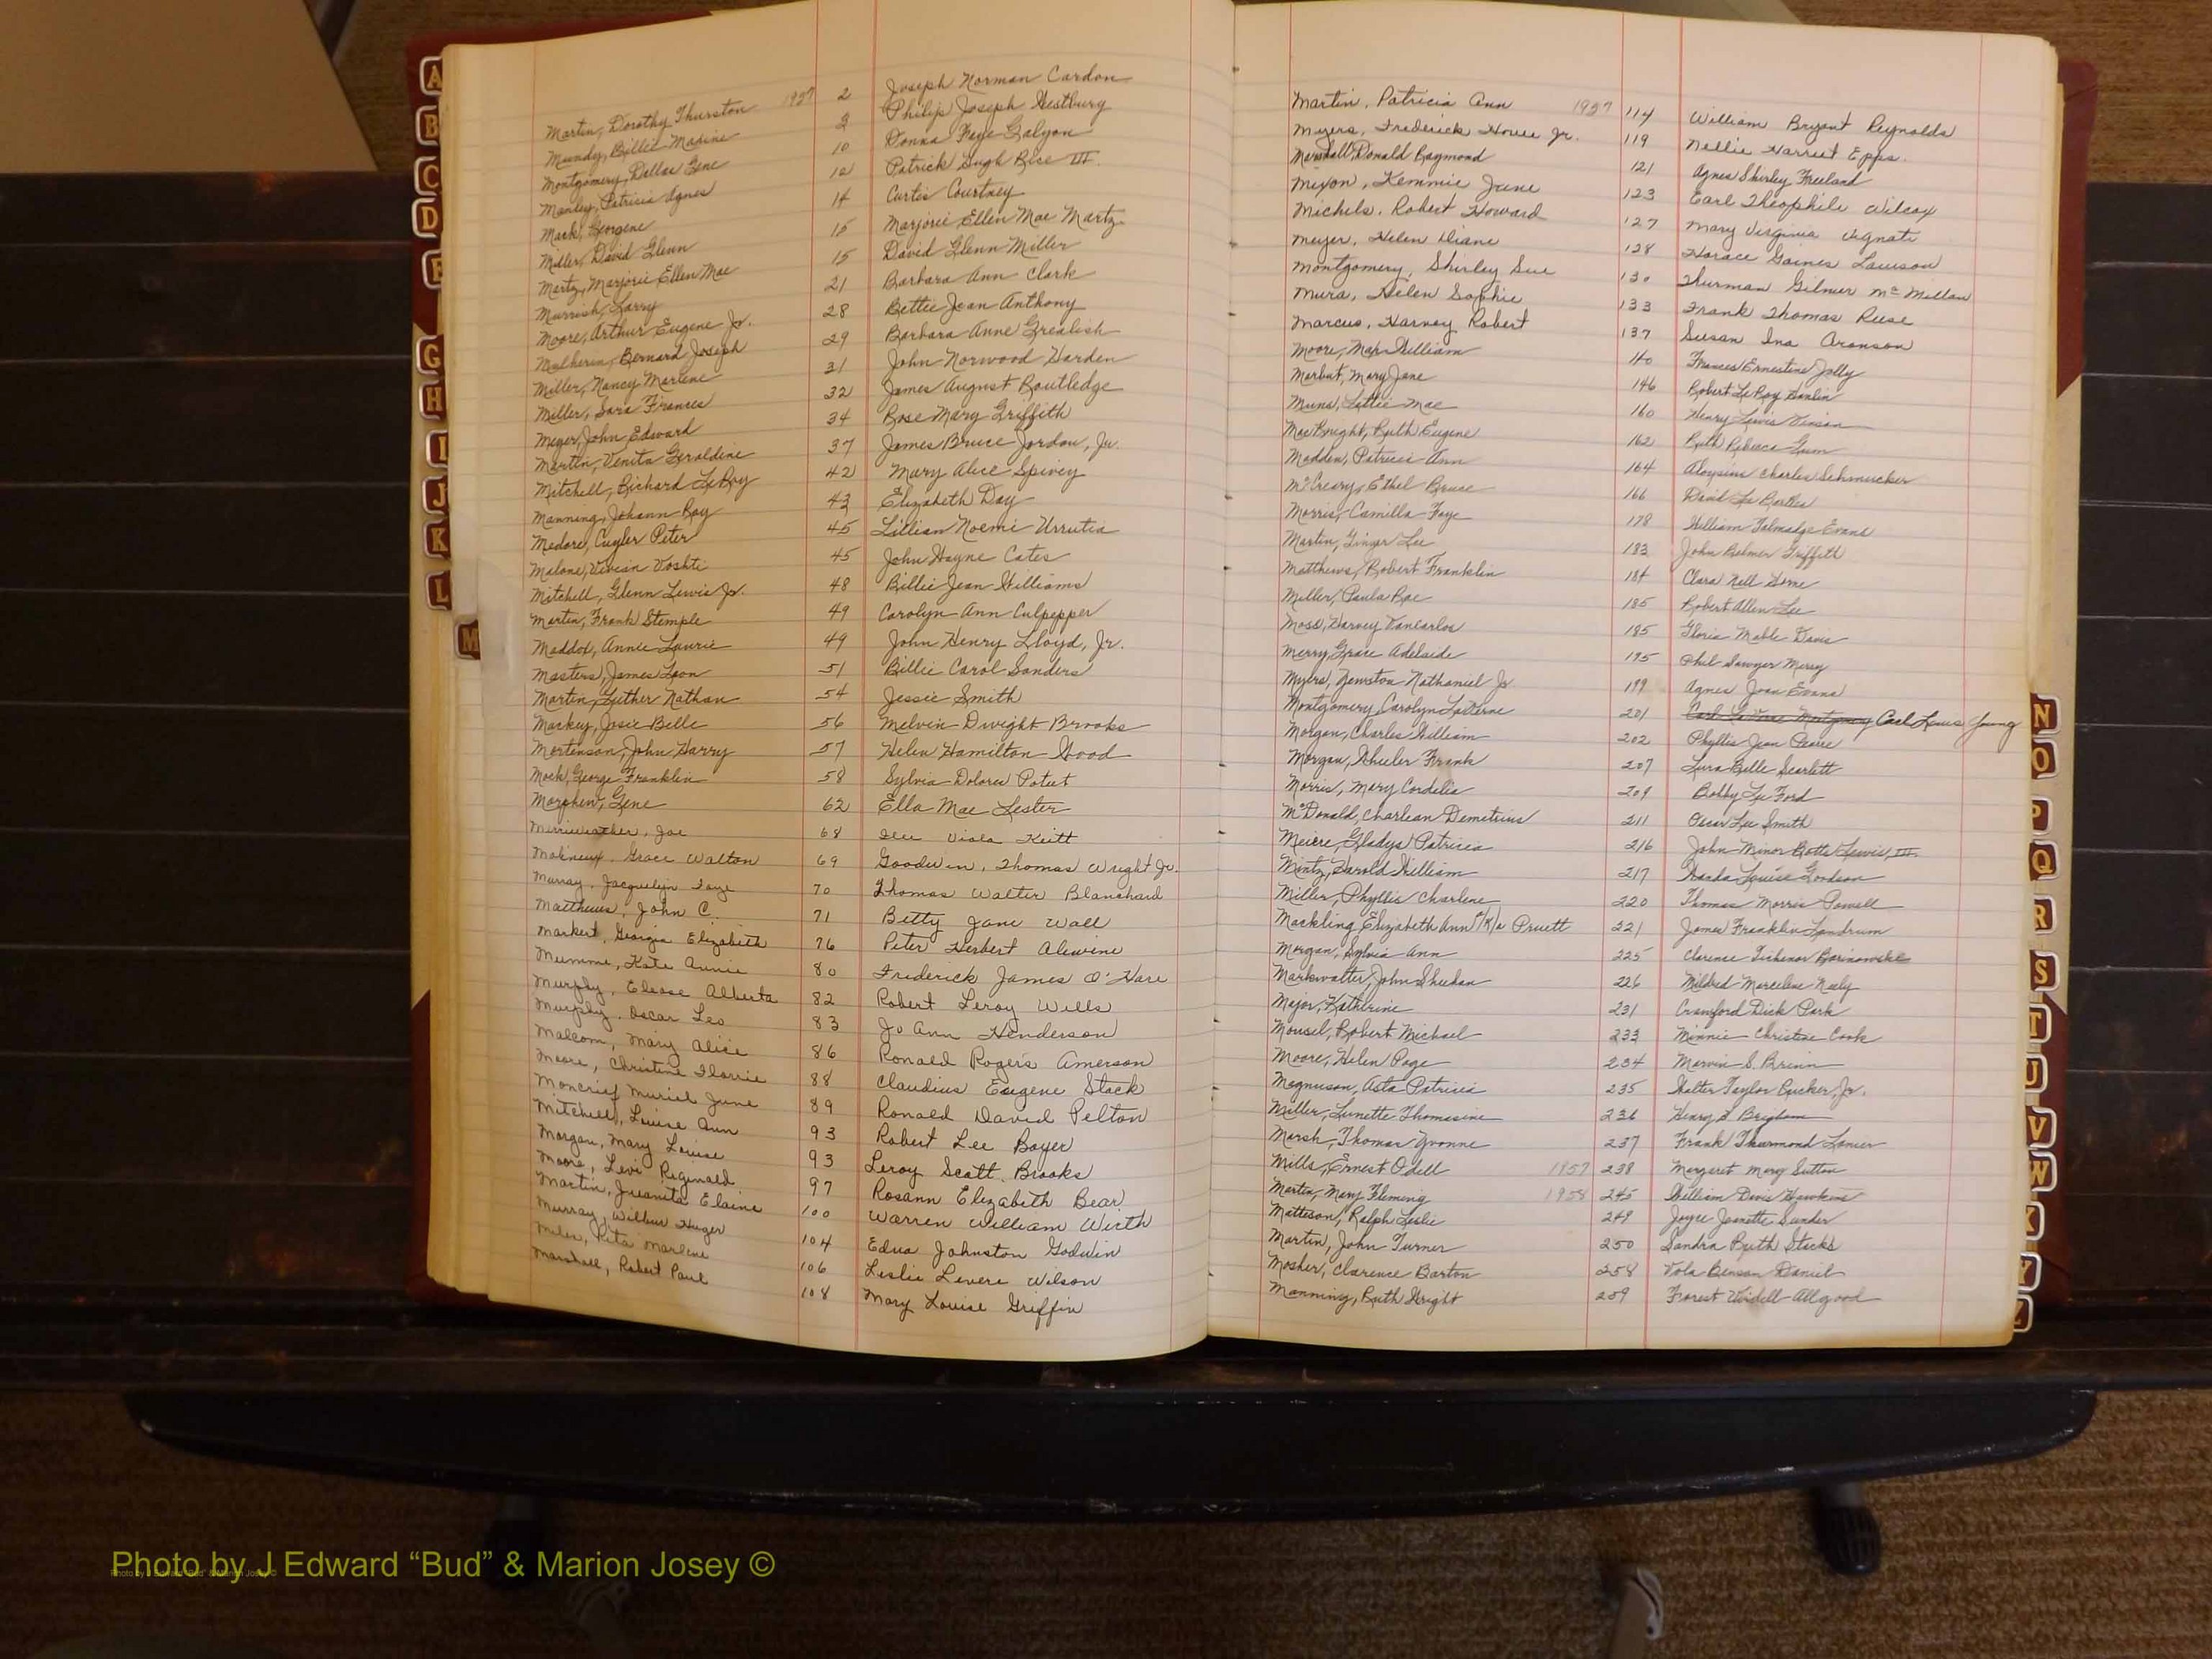 Martin, Dorothy Thurston 1957 2 Joseph Norman Cardon
Mundy, Billie Maxine 3 Philip Joseph Westbury
Montgomery, Dallas Gene 10 Donna Faye Galyon
Manley, Patricia Agnes 12 Patrick Hugh Rise III.
Mack, Georgene 14 Curtis Courtney
Miller, David Glenn 15 Marjorie Ellen Mae Martz
Martz, Marjorie Ellen Mae 15 David Glenn Miller
Murrish, Larry 21 Barbara Ann Clark
Moore, Arthur Eugene Jr. 28 Bettie Jean Anthony
Mulherin, Bernard Joseph 29 Barbara Anne Grealish
Miller, Nancy Marlene 31 John Norwood Harden
Miller, Sara Frances 32 James August Routledge
Meyer, John Edward 34 Rose Mary Griffith
Martin, Venita Geraldine 37 James Bruce Jordan, Jr.
Mitchell, Richard LeRoy 42 Mary Alice Spivey
Manning, Johann Roy 43 Elizabeth Day
Medore, Cuyler Peter 45 Lillian Noemi Urrutia
Malone, Vivian Voshti 45 John Hayne Cates
Mitchell, Glenn Lewis Jr. 48 Billie Jean Williams
Martin, Frank Stemple 49 Carolyn Ann Culpepper
Maddox, Annie Laurie 49 John Henry Lloyd, Jr.
Masters, James Leon 51 Billie Carol Sanders
Martin, Luther Nathan 54 Jessie Smith
Mackey, Josie Belle 56 Melvin Dwight Brooks
Mortenson, John Harry 57 Helen Hamilton Wood
Mock, George Franklin 58 Sylvia Dolores Poteet
Gene 62 Ella Mae Lester
Merriweather, Joe 68 Viola Keitt
Grace Walton 69 Goodwin, Thomas Wright Jr.
Murray, Jacquelyn Faye 70 Thomas Walter Blanchard
Matthews, John C. 71 Betty Jane Wall
Markert, Georgia Elizabeth 76 Peter Herbert Alewine
Mumme, Kate Annie 80 Frederick James O'Hare
Murphy, Eloise Alberta 82 Robert Leroy Wells
Murphy, Oscar Leo 83 Jo Ann Henderson
Malcom, Mary Alice 86 Ronald Rogers Amerson
Moore, Christine 88 Claudius Eugene Stack
Moncrief Muriel June 89 Ronald David Pelton
Mitchell, Louise Ann 93 Robert Lee Boyer
Morgan, Mary Louise 93 Leroy Scott Brooks
Moore, Levi Reginald 97 Rosann Elizabeth Bear
Martin, Juanita Elaine 100 Warren William Wirth
Murray, Wilbur Huger 104 Edna Johnston Godwin
Miles, Rita Marlene 106 Leslie Levere Wilson
Marshall, Robert Paul 108 Mary Louise Griffin
Martin, Patricia Ann 1957 114 William Bryant Reynolds
Myers, Frederick Jr. 119 Nellie Harriet Epps.
Marshall, Donald Raymond 121 Agnes Shirley Freeland
Mixon, Kemmie June 123 Earl Theophile Wilcox
Michels, Robert Howard 127 Mary Virginia Vignati
Meyer, Helen Diane 128 Horace Gaines Lawson
Montgomery, Shirley Sue 130 Thurman Gilmer McMillan
Mura, Helen Sophie 133 Frank Thomas Ruse
Marcus, Harvey Robert 137 Susan Ina Aronson
Moore, Max William 140 Frances Ernestine Jolly
Marbut, Mary Jane 146 Robert LeRoy Hanlin
Muns, Lottie Mae 160 Henry Lewis Vinson
MacKnight, Ruth Eugene 162 Ruth Rebecca Gunn
Madden, Patricia Ann 164 Aloysius Charles Schmucker
McCreary, Ethel Bruce 166 David
Morris, Camilla Faye 178 William Talmadge Evans
Martin, Ginger Lee 183 John Griffeth
Matthews, Robert Franklin 184 Clara Nell Horne
Miller, Paula Rae 185 Robert Allen Lee
Moss, Harvey Vancarlos 185 Gloria Mable Davis
Merry, Grace Adelaide 195 Phil Sawyer Mersy
Myers, Newston Nathaniel Jr. 199 Agnes Joan Evans
Montgomery, Carolyn LaVerne 201 Carl LaVerne Montgomery Carl Lewis Young
Morgan, Charles William 202 Phyllis Jean Pearre
Morgan, Wheeler Frank 207 Lura Belle Scarlett
Morris, Mary Cordelia 209 Bobby Lee Ford
McDonald, Charlean Demetrius 211 Oscar Lee Smith
Meiere, Gladys Patricia 216 John Minor Botts Lewis, III.
Mintz, Harold William 217 Wanda Louise Goodson
Miller, Phyllis Charlene 220 Thomas Morris Powell
Mackling, Elizabeth Ann A/K/a Pruett 221 James Franklin Landrum
Morgan, Sylvia Ann 225 Clarence Tichenor Barinowski
Markwalter, John Sheehan 226 Mildred Marcelene Neely
Major, Katherine 231 Crawford Dick Park
Mousel, Robert Michael 233 Minnie Christine Cook
Moore, Helen Page 234 Marvin S. Brinn
Magnuson, Asta Patricia 235 Walter Taylor Rucker, Jr.
Miller, Lunette Thomasine 236 Henry S. Brigham
Marsh, Thomas Yvonne 237 Frank Thurmond Lanier
Mills, Ernest Odell 1957 238 Margaret Mary Sutton
Martin, Mary Fleming 1958 245 William Davis Hawkins
Matteson, Ralph Leslie 249 Joyce Jeanette Sander
Martin, John Turner 250 Sandra Ruth Stocks
Mosher, Clarence Barton 258 Vola Benson Daniel
Manning, Ruth Wright 259 Forest Weidell Allgood
A
B
C
D
F
G
H
I
J
K
L
M
N
O
P
Q
R
S
T
U
V
W
X
Y
Z
Photo by J Edward “Bud” & Marion Josey ©
Photo by J Edward “Bud” & Marion Josey ©